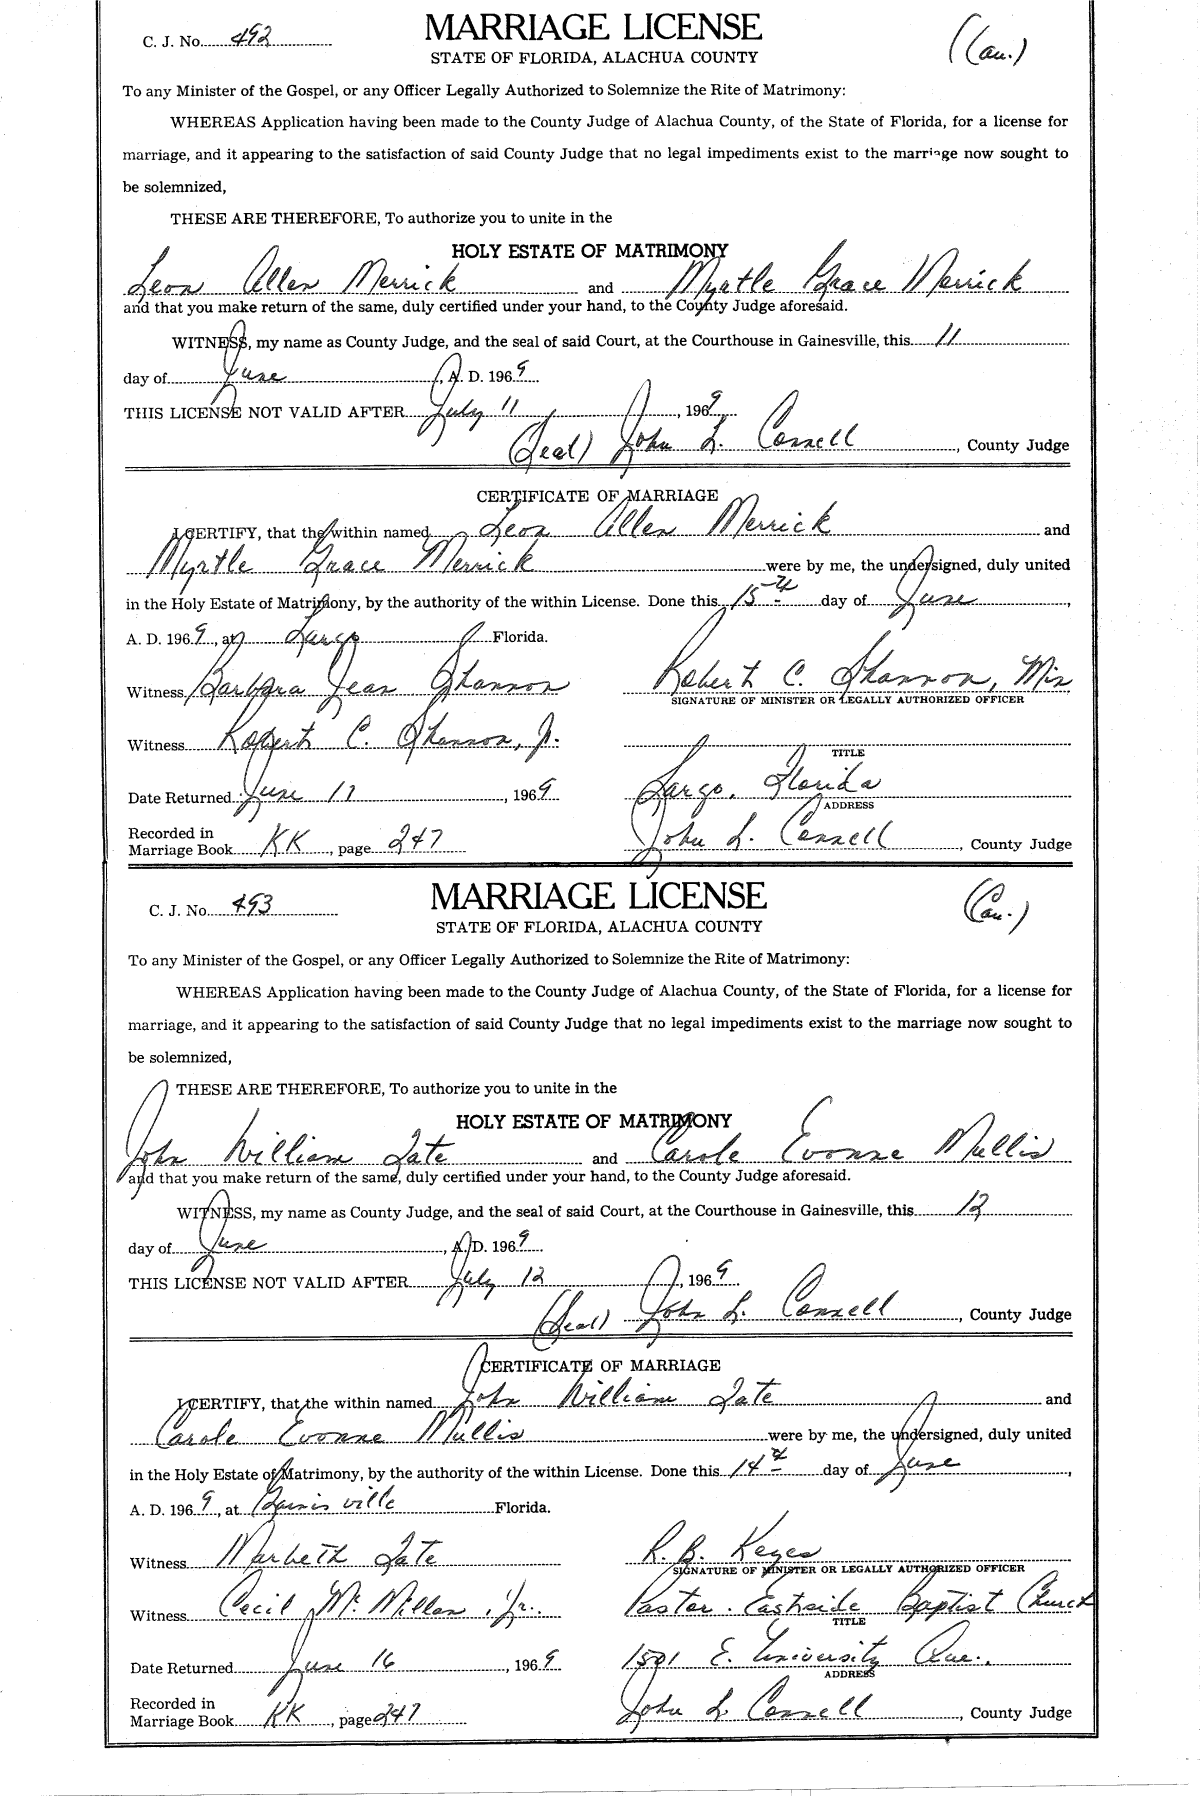 C. J. No. 492
MARRIAGE LICENSE
(Cau.)
STATE OF FLORIDA, ALACHUA COUNTY
To any Minister of the Gospel, or any Officer Legally Authorized to Solemnize the Rite of Matrimony:
WHEREAS Application having been made to the County Judge of Alachua County, of the State of Florida, for a license for
marriage, and it appearing to the satisfaction of said County Judge that no legal impediments exist to the marriage now sought to
be solemnized,
THESE ARE THEREFORE, To authorize you to unite in the
HOLY ESTATE OF MATRIMONY
Leon Allen Merrick and Myrtle Grace Merrick
and that you make return of the same, duly certified under your hand, to the County Judge aforesaid.
WITNESS, my name as County Judge, and the seal of said Court, at the Courthouse in Gainesville, this 11
day of June, A. D. 1969
THIS LICENSE NOT VALID AFTER July 11, 1969
(Seal) John L. Connell, County Judge
CERTIFICATE OF MARRIAGE
I CERTIFY, that the within named Leon Allen Merrick and
Myrtle Grace Merrick were by me, the undersigned, duly united
in the Holy Estate of Matrimony, by the authority of the within License. Done this 15th day of June,
A. D. 1969, at Largo Florida.
Witness Barbara Jean Shannon Robert C. Shannon, Min
SIGNATURE OF MINISTER OR LEGALLY AUTHORIZED OFFICER
Witness Robert C. Shannon, Jr.
TITLE
Date Returned June 17, 1969 Largo, Florida
ADDRESS
Recorded in
Marriage Book KK, page 247 John L. Connell, County Judge
C. J. No. 493
MARRIAGE LICENSE
(Cau.)
STATE OF FLORIDA, ALACHUA COUNTY
To any Minister of the Gospel, or any Officer Legally Authorized to Solemnize the Rite of Matrimony:
WHEREAS Application having been made to the County Judge of Alachua County, of the State of Florida, for a license for
marriage, and it appearing to the satisfaction of said County Judge that no legal impediments exist to the marriage now sought to
be solemnized,
THESE ARE THEREFORE, To authorize you to unite in the
HOLY ESTATE OF MATRIMONY
John William Tate and Carole Evonne Mullis
and that you make return of the same, duly certified under your hand, to the County Judge aforesaid.
WITNESS, my name as County Judge, and the seal of said Court, at the Courthouse in Gainesville, this 12
day of June, A. D. 1969
THIS LICENSE NOT VALID AFTER July 12, 1969
(Seal) John L. Connell, County Judge
CERTIFICATE OF MARRIAGE
I CERTIFY, that the within named John William Tate and
Carole Evonne Mullis were by me, the undersigned, duly united
in the Holy Estate of Matrimony, by the authority of the within License. Done this 14th day of June,
A. D. 1969, at Gainisville Florida.
Witness Marbeth Tate R. B. Keyes
SIGNATURE OF MINISTER OR LEGALLY AUTHORIZED OFFICER
Witness Cecil McMillan, Jr. Pastor. Eastside Baptist Church
TITLE
Date Returned June 16, 1969 1501 E. University Ave.
ADDRESS
Recorded in
Marriage Book KK, page 247 John L. Connell, County Judge